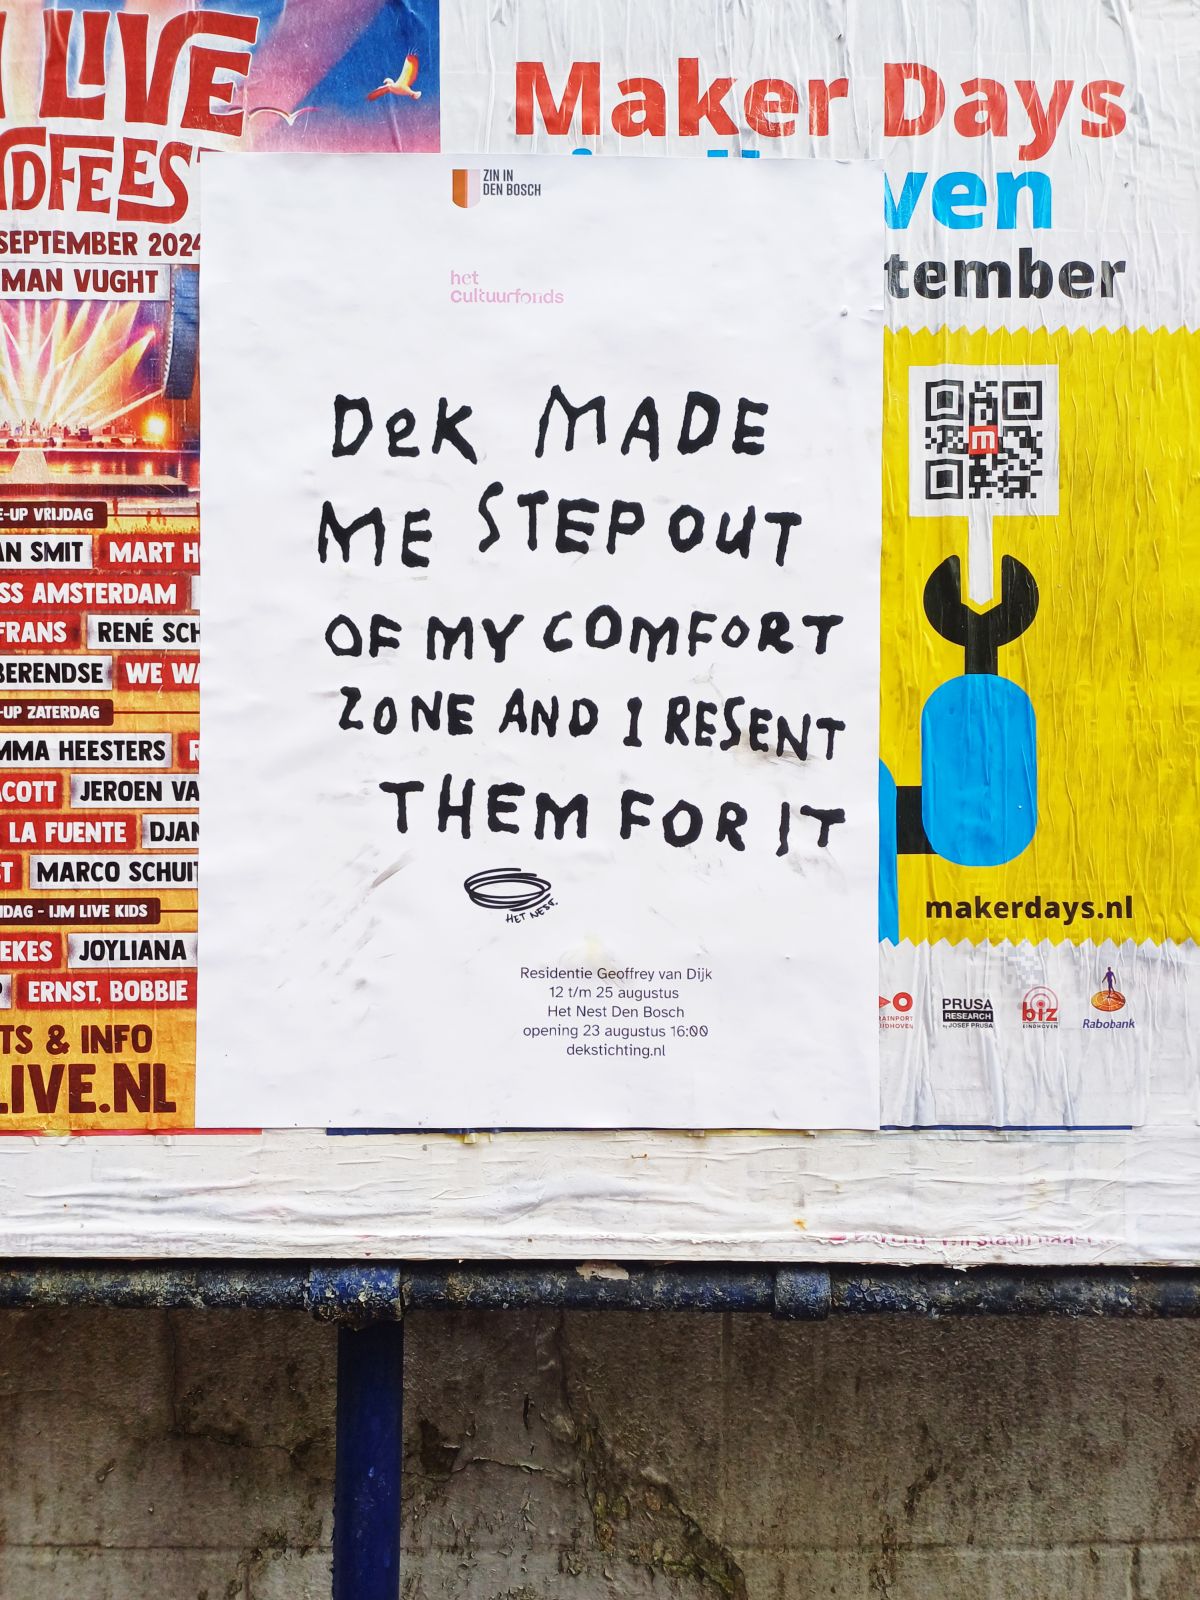 LIVE
SEPTEMBER 2024
MAN VUGHT
E-UP VRIJDAG
AN SMIT MART H
SS AMSTERDAM
FRANS RENÉ SCH
BERENDSE WE WA
-UP ZATERDAG
MMA HEESTERS
ACOTT JEROEN VA
LA FUENTE DJAN
ST MARCO SCHUIT
NDAG - IJM LIVE KIDS
EKES JOYLIANA
ERNST, BOBBIE
TS & INFO
LIVE.NL
ZIN IN
DEN BOSCH
het
cultuurfonds
DeK MADE
ME STEP OUT
OF MY COMFORT
ZONE AND I RESENT
THEM FOR IT
HET NEST.
Residentie Geoffrey van Dijk
12 t/m 25 augustus
Het Nest Den Bosch
opening 23 augustus 16:00
dekstichting.nl
Maker Days
ven
tember
m
makerdays.nl
PRUSA
RESEARCH
by JOSEF PRUSA
biz
EINDHOVEN
Rabobank